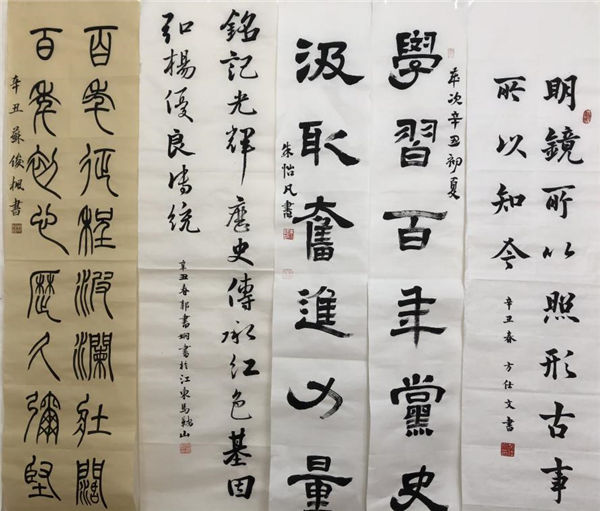 明鏡所以照形古事
所以知今
辛丑春 方仕文書
歲次辛丑初夏
學習百年黨史
汲取奮進力量
朱怡凡書
銘記光輝歷史傳承紅色基因
弘揚優良傳統
辛丑春書於江東馬鞍山
百年征程波瀾壯闊
百年初心歷久彌堅
辛丑 蘇俊楓書